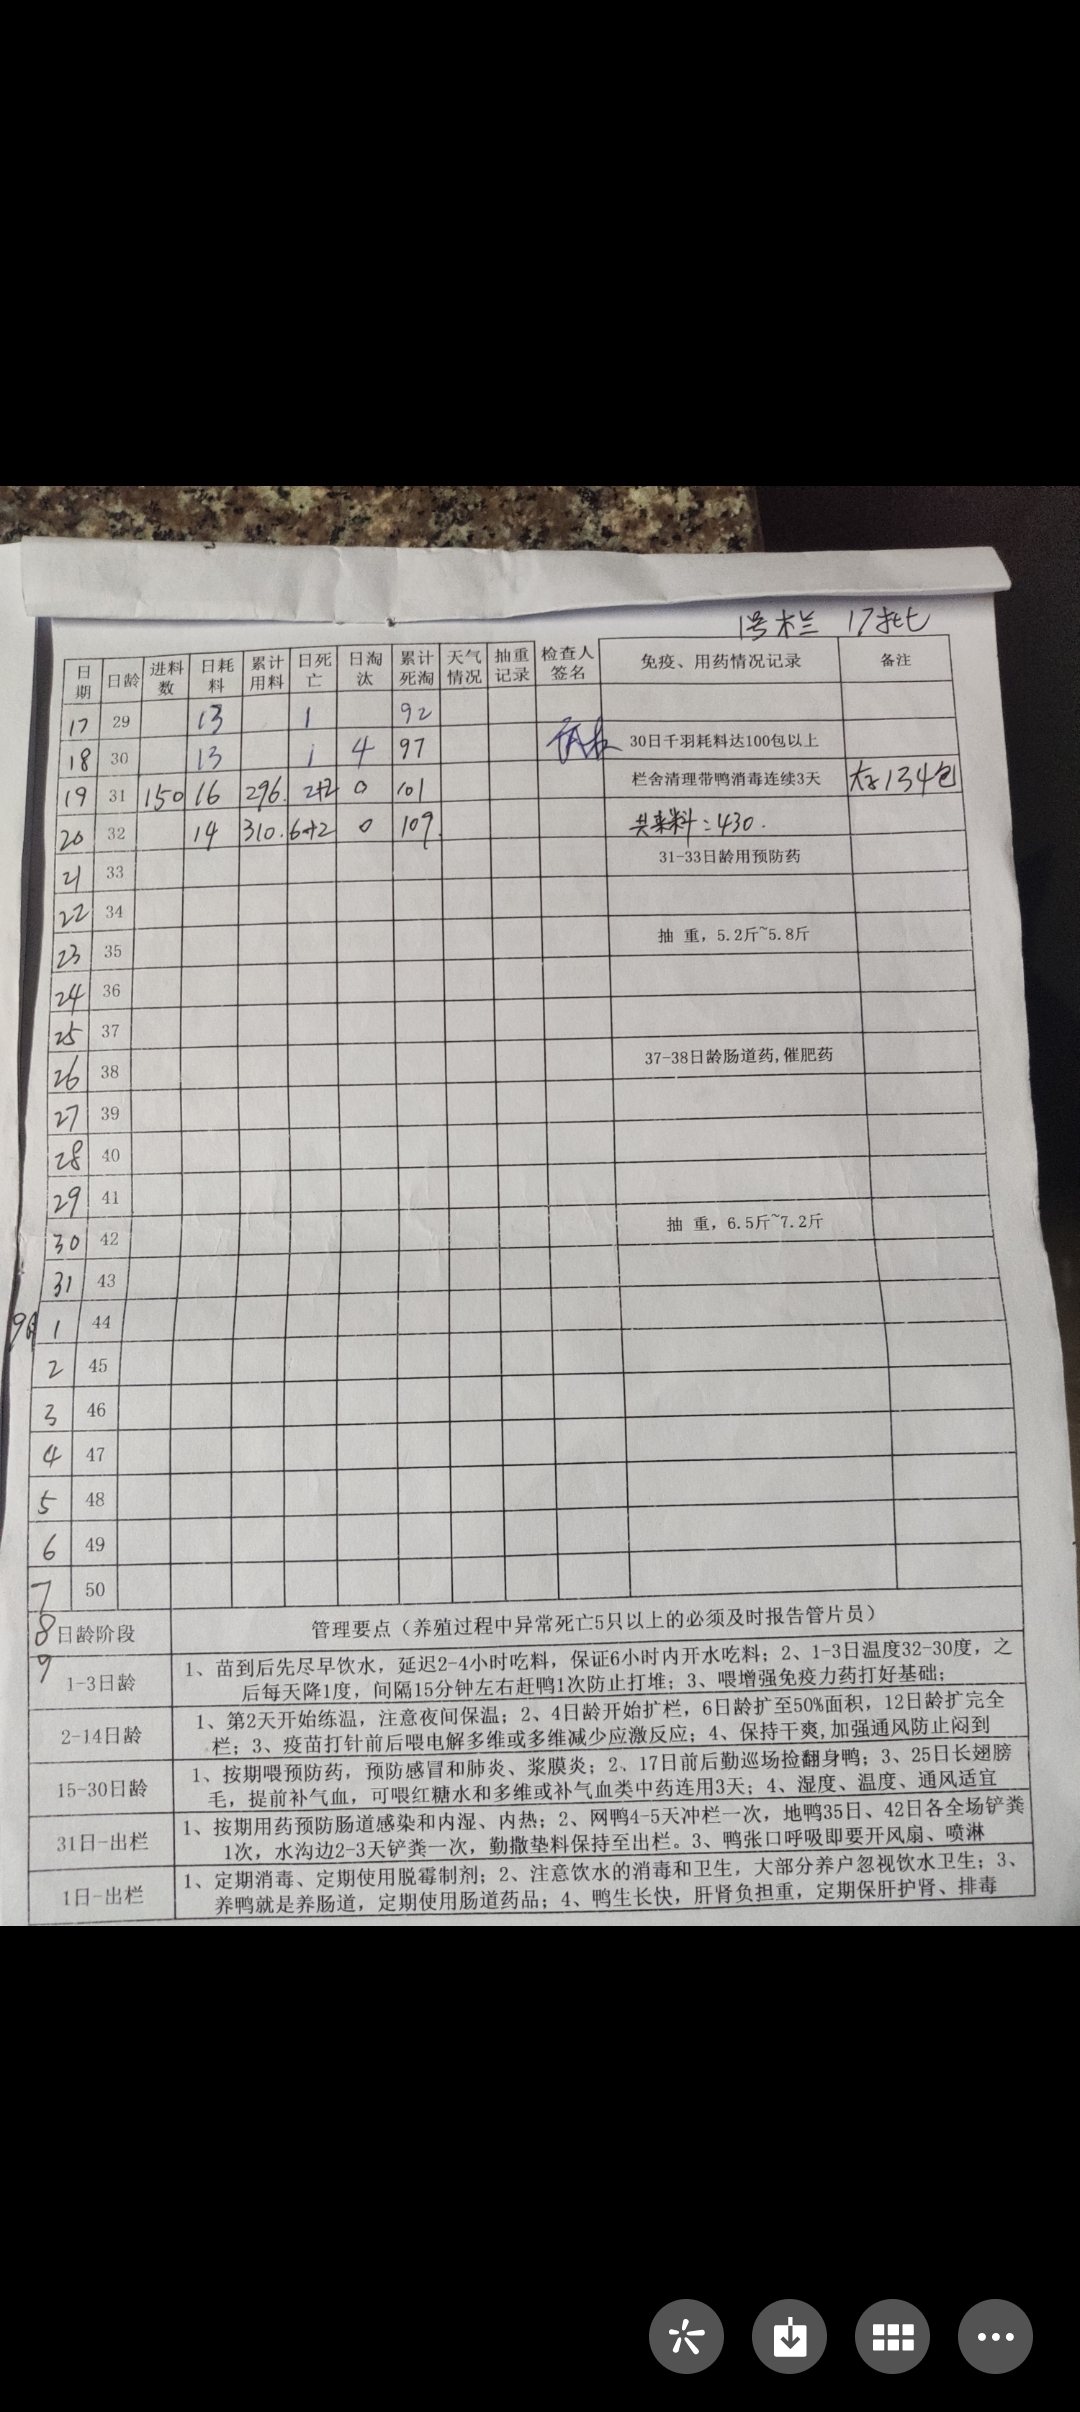 1号栏 17批
日期 日龄 进料数 日耗料 累计用料 日死亡 日淘汰 累计死淘 天气情况 抽重记录 检查人签名 免疫、用药情况记录 备注
17 29 13 1 92
18 30 13 1 4 97 30日千羽耗料达100包以上
19 31 150 16 296. 2+2 0 101 栏舍清理带鸭消毒连续3天 存134包
20 32 14 310. 6+2 0 109. 共来料:430.
21 33 31-33日龄用预防药
22 34
23 35 抽 重，5.2斤~5.8斤
24 36
25 37
26 38 37-38日龄肠道药,催肥药
27 39
28 40
29 41
30 42 抽 重，6.5斤~7.2斤
31 43
9月 1 44
2 45
3 46
4 47
5 48
6 49
7 50
8 日龄阶段 管理要点（养殖过程中异常死亡5只以上的必须及时报告管片员）
9 1-3日龄 1、苗到后先尽早饮水，延迟2-4小时吃料，保证6小时内开水吃料；2、1-3日温度32-30度，之
后每天降1度，间隔15分钟左右赶鸭1次防止打堆；3、喂增强免疫力药打好基础；
2-14日龄 1、第2天开始练温，注意夜间保温；2、4日龄开始扩栏，6日龄扩至50%面积，12日龄扩完全
栏；3、疫苗打针前后喂电解多维或多维减少应激反应；4、保持干爽,加强通风防止闷到
15-30日龄 1、按期喂预防药，预防感冒和肺炎、浆膜炎；2、17日前后勤巡场捡翻身鸭；3、25日长翅膀
毛，提前补气血，可喂红糖水和多维或补气血类中药连用3天；4、湿度、温度、通风适宜
31日-出栏 1、按期用药预防肠道感染和内湿、内热；2、网鸭4-5天冲栏一次，地鸭35日、42日各全场铲粪
1次，水沟边2-3天铲粪一次，勤撒垫料保持至出栏。3、鸭张口呼吸即要开风扇、喷淋
1日-出栏 1、定期消毒、定期使用脱霉制剂；2、注意饮水的消毒和卫生，大部分养户忽视饮水卫生；3、
养鸭就是养肠道，定期使用肠道药品；4、鸭生长快，肝肾负担重，定期保肝护肾、排毒